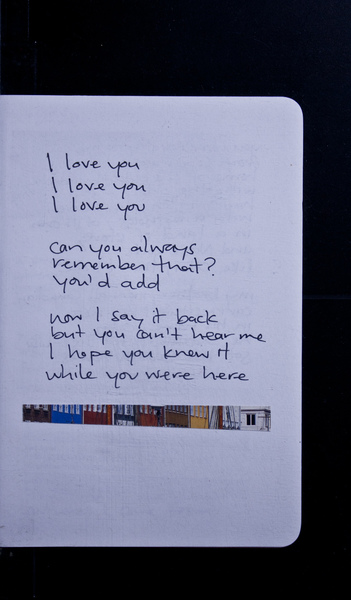 I love you
I love you
I love you
can you always
remember that?
you'd add
now I say it back
but you can't hear me
I hope you knew it
while you were here